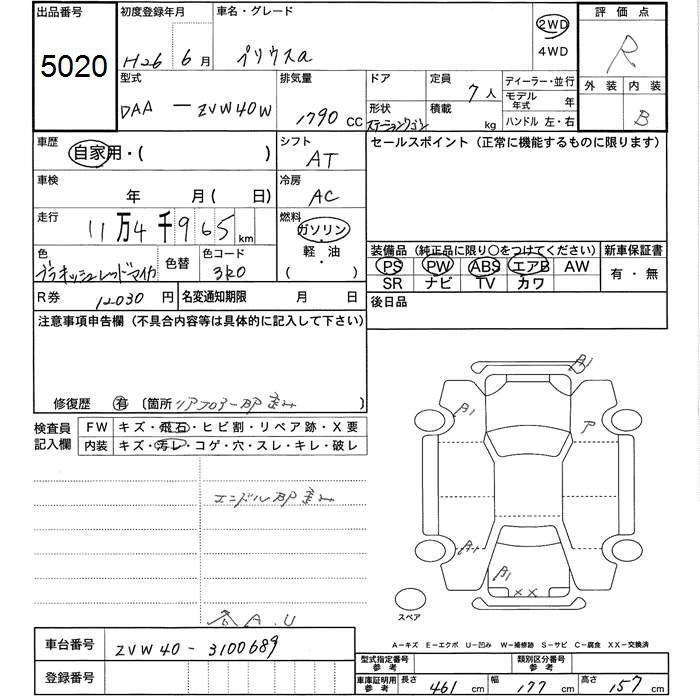 出品番号 初度登録年月 車名・グレード 評価点
5020 H26 6月 プリウスα 2WD R
4WD
型式 排気量 ドア 定員 7人 ディーラー・並行 外装 内装
DAA - ZVW40W 1790 CC 形状 積載 モデル年式 年
ステーションワゴン kg ハンドル 左・右 B
車歴 シフト セールスポイント (正常に機能するものに限ります)
自家用・( ) AT
車検 冷房
年 月 ( 日) AC
走行 燃料
11万4千965km ガソリン
軽・油
( )
色 色替 色コード 装備品 (純正品に限り○をつけてください) 新車保証書
3R0 PS PW ABS エアB AW 有・無
SR ナビ TV カワ
R券 12030 円 名変通知期限 月 日 後日品
注意事項申告欄 (不具合内容等は具体的に記入して下さい)
修復歴 有 〔箇所 リアフロアーBP歪み
検査員 FW キズ・飛石・ヒビ割・リペア跡・X要
記入欄 内装 キズ・汚レ・コゲ・穴・スレ・キレ・破レ
エンドルBP歪み
A.U
β1
β1
ア
β1
β1
XX
スペア
A-キズ E-エクボ U-凹み W-補修跡 S-サビ C-腐食 XX-交換済
車台番号 ZVW40 - 3100689
登録番号
型式指定番号 参考 類別区分番号 参考
車庫証明用 参考 長さ 461 cm 幅 177 cm 高さ 157 cm